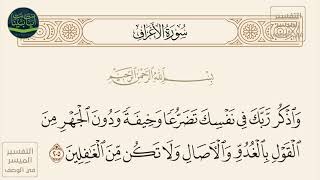 سُورَةُ الأَعْرَافِ
بِسْمِ اللَّهِ الرَّحْمَٰنِ الرَّحِيمِ
وَٱذْكُر رَّبَّكَ فِى نَفْسِكَ تَضَرُّعًا وَخِيفَةً وَدُونَ ٱلْجَهْرِ مِنَ
ٱلْقَوْلِ بِٱلْغُدُوِّ وَٱلْأَصَالِ وَلَا تَكُن مِّنَ ٱلْغَٰفِلِينَ ٢٠٥
التفسير
الميسر
في الوصف
التفسير
الميسر
في الوصف